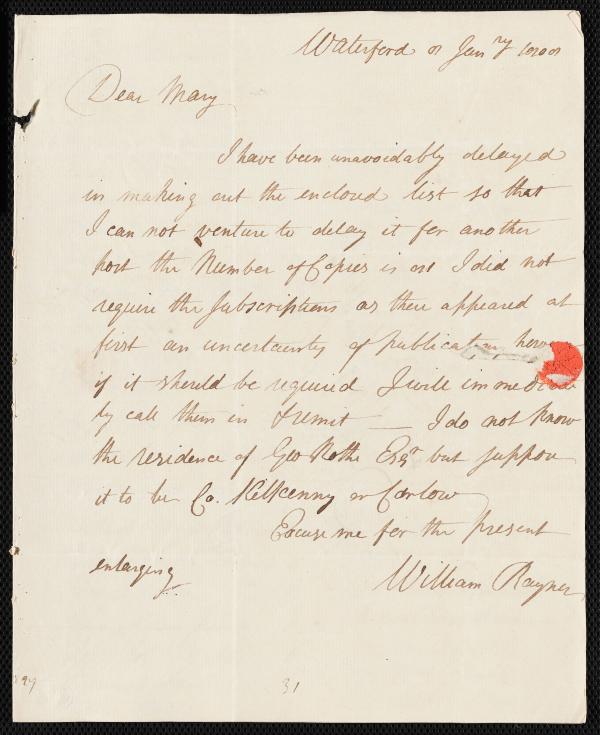 Waterford Janry
Dear Mary
I have been unavoidably delayed
in making out the enclosed list so that
I can not venture to delay it for another
post the Number of Copies is I did not
require the Subscriptions as there appeared at
first an uncertainty of publication
if it should be required I will immediate
ly call them in & remit — I do not know
the residence of Geo Rothe Esqr but suppose
it to be Co. Kilkenny or Carlow
Excuse me for the present
enlarging
William Rayner
31